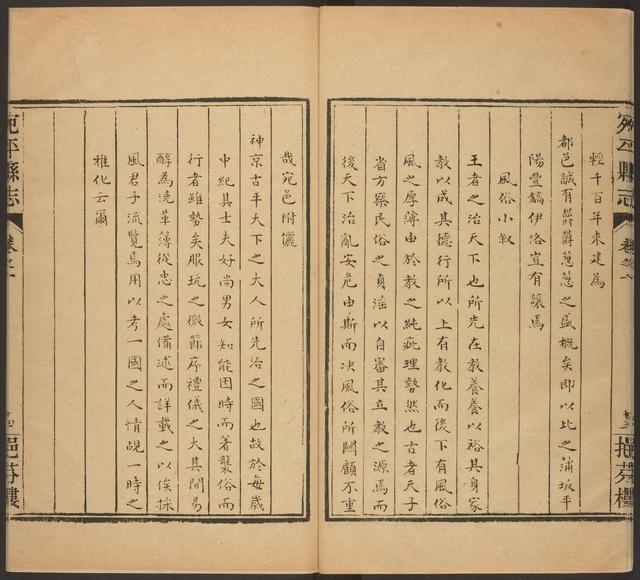 輕千百年來建為
都邑誠有欝欝蔥蔥之盛概矣即以比之蒲坂平
陽豐鎬伊洛豈有讓焉
風俗小敘
王者之治天下也所先在教養養以裕其身家
教以成其德行所以上有教化而後下有風俗
風之厚薄由於教之純疵理勢然也古者天子
省方察民俗之貞滛以自審其立教之源焉而
後天下治亂安危由斯而决風俗所関顧不重
哉宛邑附儷
神京古平天下之大人所先治之國也故於每歲
中紀其士夫好尚男女知能因時而著襲俗而
行者雖勢矣服玩之微節序禮儀之大其間易
醇為澆革簿從忠之處備述而詳載之以俟採
風君子流覽焉用以考一國之人情覘一時之
雅化云爾
宛平縣志
卷之一
挹芬樓